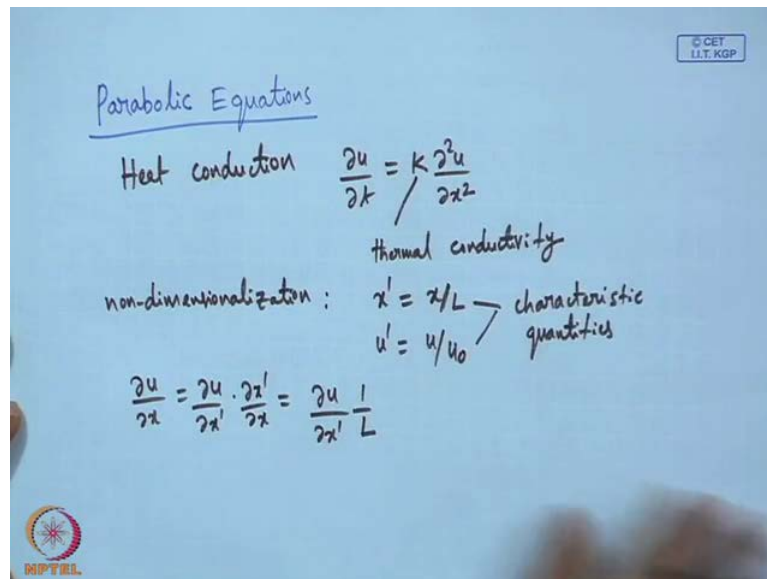 © CET
I.I.T. KGP
Parabolic Equations
Heat conduction ∂u/∂t = K ∂²u/∂x²
thermal conductivity
non-dimensionalization : x' = x/L — characteristic
u' = u/u₀ quantities
∂u/∂x = ∂u/∂x' · ∂x'/∂x = ∂u/∂x' 1/L
NPTEL